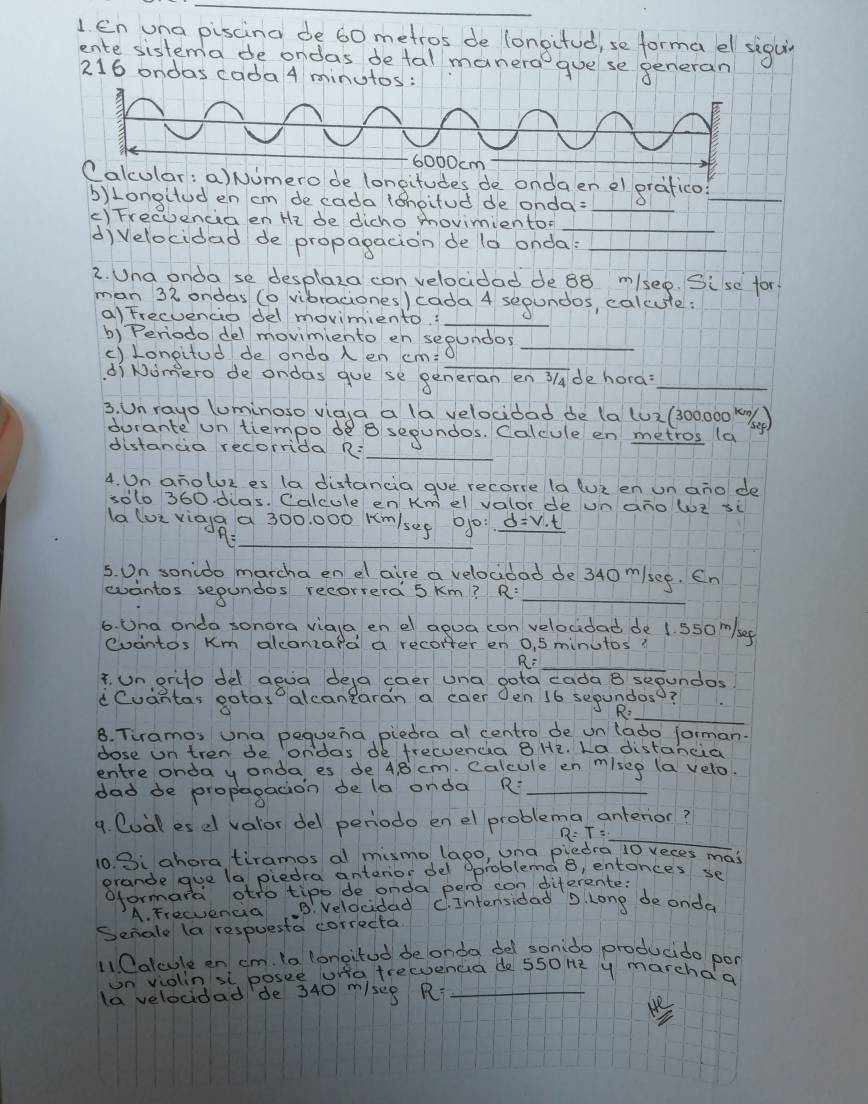 1. En una piscina de 60 metros de longitud, se forma el sigui-
ente sistema de ondas de tal manera que se generan
216 ondas cada 4 minutos:
6000cm
Calcular: a) Número de longitudes de onda en el gráfico:
b) Longitud en cm de cada longitud de onda:
c) Frecuencia en Hz de dicho movimiento:
d) Velocidad de propagación de la onda:
2. Una onda se desplaza con velocidad de 88 m/seg. Si se for-
man 32 ondas (o vibraciones) cada 4 segundos, calcule:
a) Frecuencia del movimiento:
b) Periodo del movimiento en segundos
c) Longitud de onda λ en cm=
d) Número de ondas que se generan en 3/4 de hora:
3. Un rayo luminoso viaja a la velocidad de la luz (300.000 km/seg)
durante un tiempo de 8 segundos. Calcule en metros la
distancia recorrida R:
4. Un año luz es la distancia que recorre la luz en un año de
sólo 360 días. Calcule en Km el valor de un año luz si
la luz viaja a 300.000 Km/seg Ojo: d=v.t
R:
5. Un sonido marcha en el aire a velocidad de 340 m/seg. En
cuántos segundos recorrerá 5 Km? R:
6. Una onda sonora viaja en el agua con velocidad de 1.550 m/seg
Cuántos Km alcanzará a recorrer en 0,5 minutos?
R:
7. Un grifo del agua deja caer una gota cada 8 segundos.
¿Cuántas gotas alcanzarán a caer en 16 segundos?
R:
8. Tiramos una pequeña piedra al centro de un lado forman-
dose un tren de ondas de frecuencia 8 Hz. La distancia
entre onda y onda es de 4,8 cm. Calcule en m/seg la velo-
dad de propagación de la onda R:
9. Cuál es el valor del periodo en el problema anterior?
R: T=
10. Si ahora tiramos al mismo lago, una piedra 10 veces más
grande que la piedra anterior del problema 8, entonces se
formará otro tipo de onda pero con diferente:
A. Frecuencia B. Velocidad C. Intensidad D. Long de onda
Señale la respuesta correcta
11. Calcule en cm. la longitud de onda del sonido producido por
un violin si posee una frecuencia de 550 Hz y marcha a
la velocidad de 340 m/seg R: